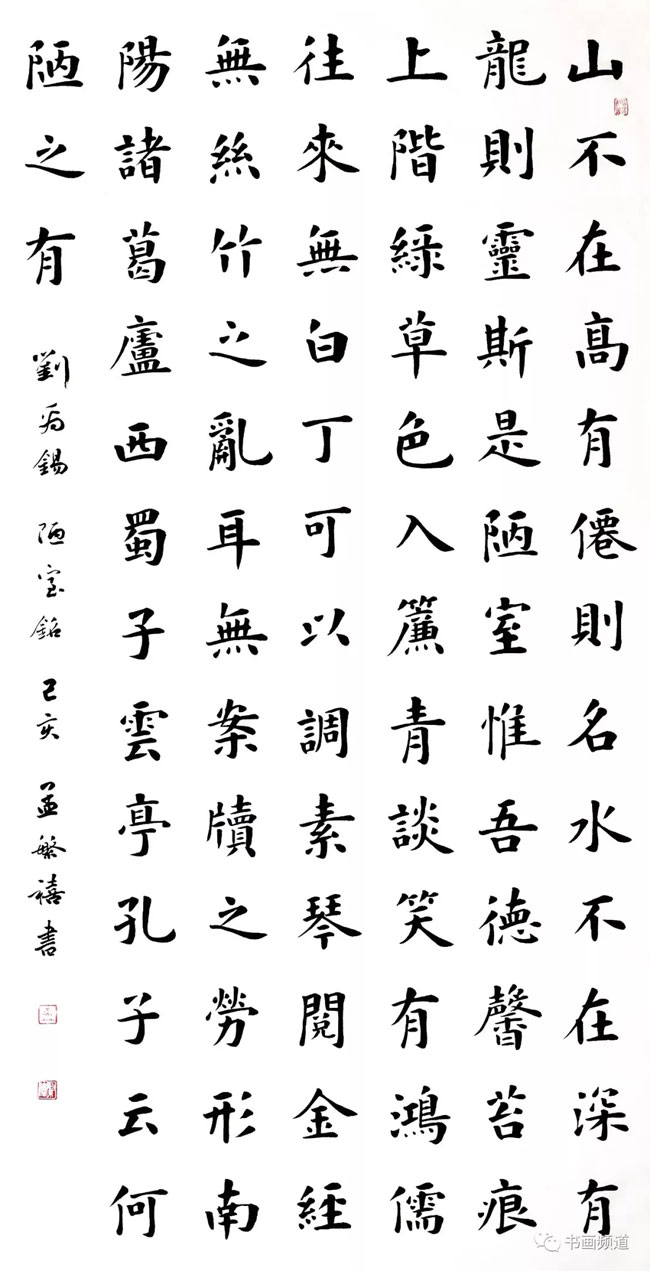 山不在高有僊則名水不在深有
龍則靈斯是陋室惟吾德馨苔痕
上階綠草色入簾青談笑有鴻儒
往來無白丁可以調素琴閱金經
無絲竹之亂耳無案牘之勞形南
陽諸葛廬西蜀子雲亭孔子云何
陋之有
劉禹錫 陋室銘 己亥 孟繁禧書
书画频道